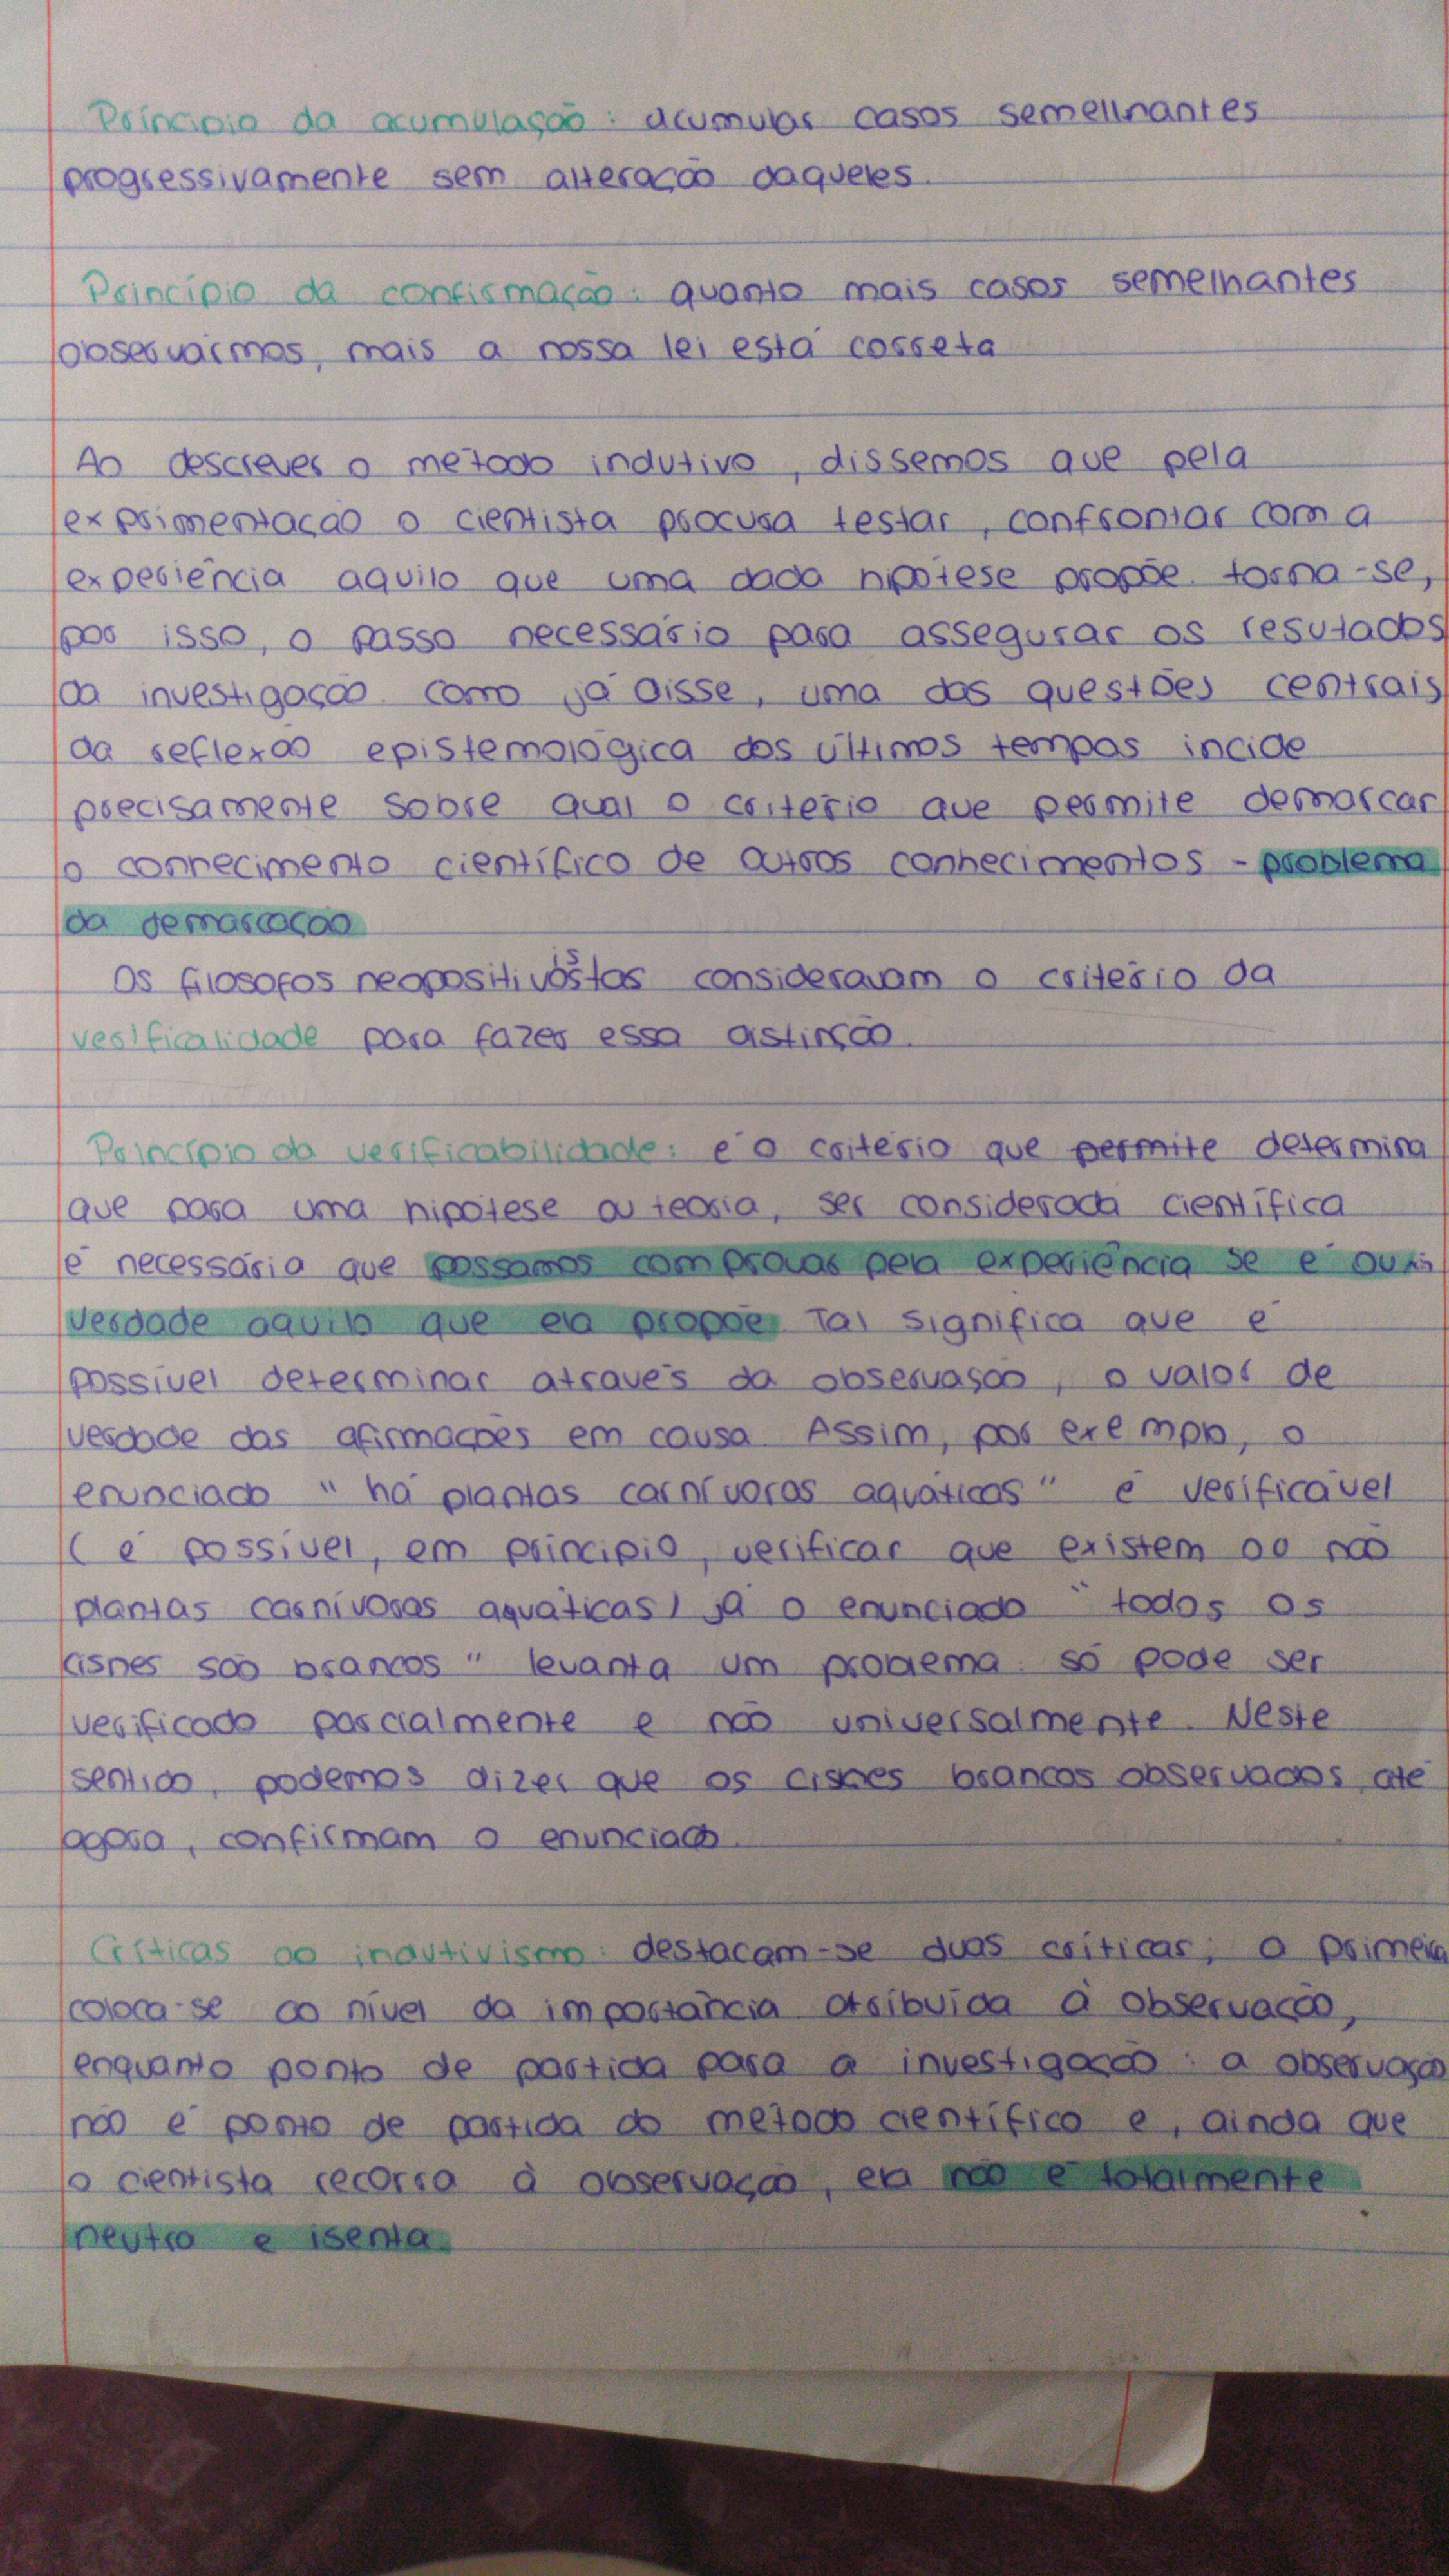 Princípio da acumulação: acumular casos semelhantes
progressivamente sem alteração daqueles.
Princípio da confirmação: quanto mais casos semelhantes
observarmos, mais a nossa lei está correta
Ao descrever o método indutivo, dissemos que pela
exprimentação o cientista procura testar, confrontar com a
experiência aquilo que uma dada hipótese propõe. torna-se,
por isso, o passo necessário para assegurar os resutados
da investigação. como já disse, uma das questões centrais
da reflexão epistemológica dos últimos tempos incide
precisamente sobre qual o critério que permite demarcar
o conhecimento científico de outros conhecimentos - problema
da demarcação
Os filosofos neopositivistas consideravam o critério da
verificalidade para fazer essa distinção.
Princípio da verificabilidade: é o critério que permite determina
que para uma hipótese ou teoria, ser considerada científica
é necessário que possamos comprovar pela experiência se é ou não
verdade aquilo que ela propõe. Tal significa que é
possível determinar através da observação, o valor de
verdade das afirmações em causa. Assim, por exemplo, o
enunciado "há plantas carnívoras aquáticas" é verificável
(é possível, em principio, verificar que existem ou não
plantas carnívoras aquáticas) já o enunciado "todos os
cisnes são brancos" levanta um problema: só pode ser
verificado parcialmente e não universalmente. Neste
sentido, podemos dizer que os cisnes brancos observados, até
agora, confirmam o enunciado.
Críticas ao indutivismo: destacam-se duas críticas; a primeira
coloca-se ao nível da importância atribuída à observação,
enquanto ponto de partida para a investigação: a observação
não é ponto de partida do método científico e, ainda que
o cientista recorra à observação, ela não é totalmente
neutra e isenta.